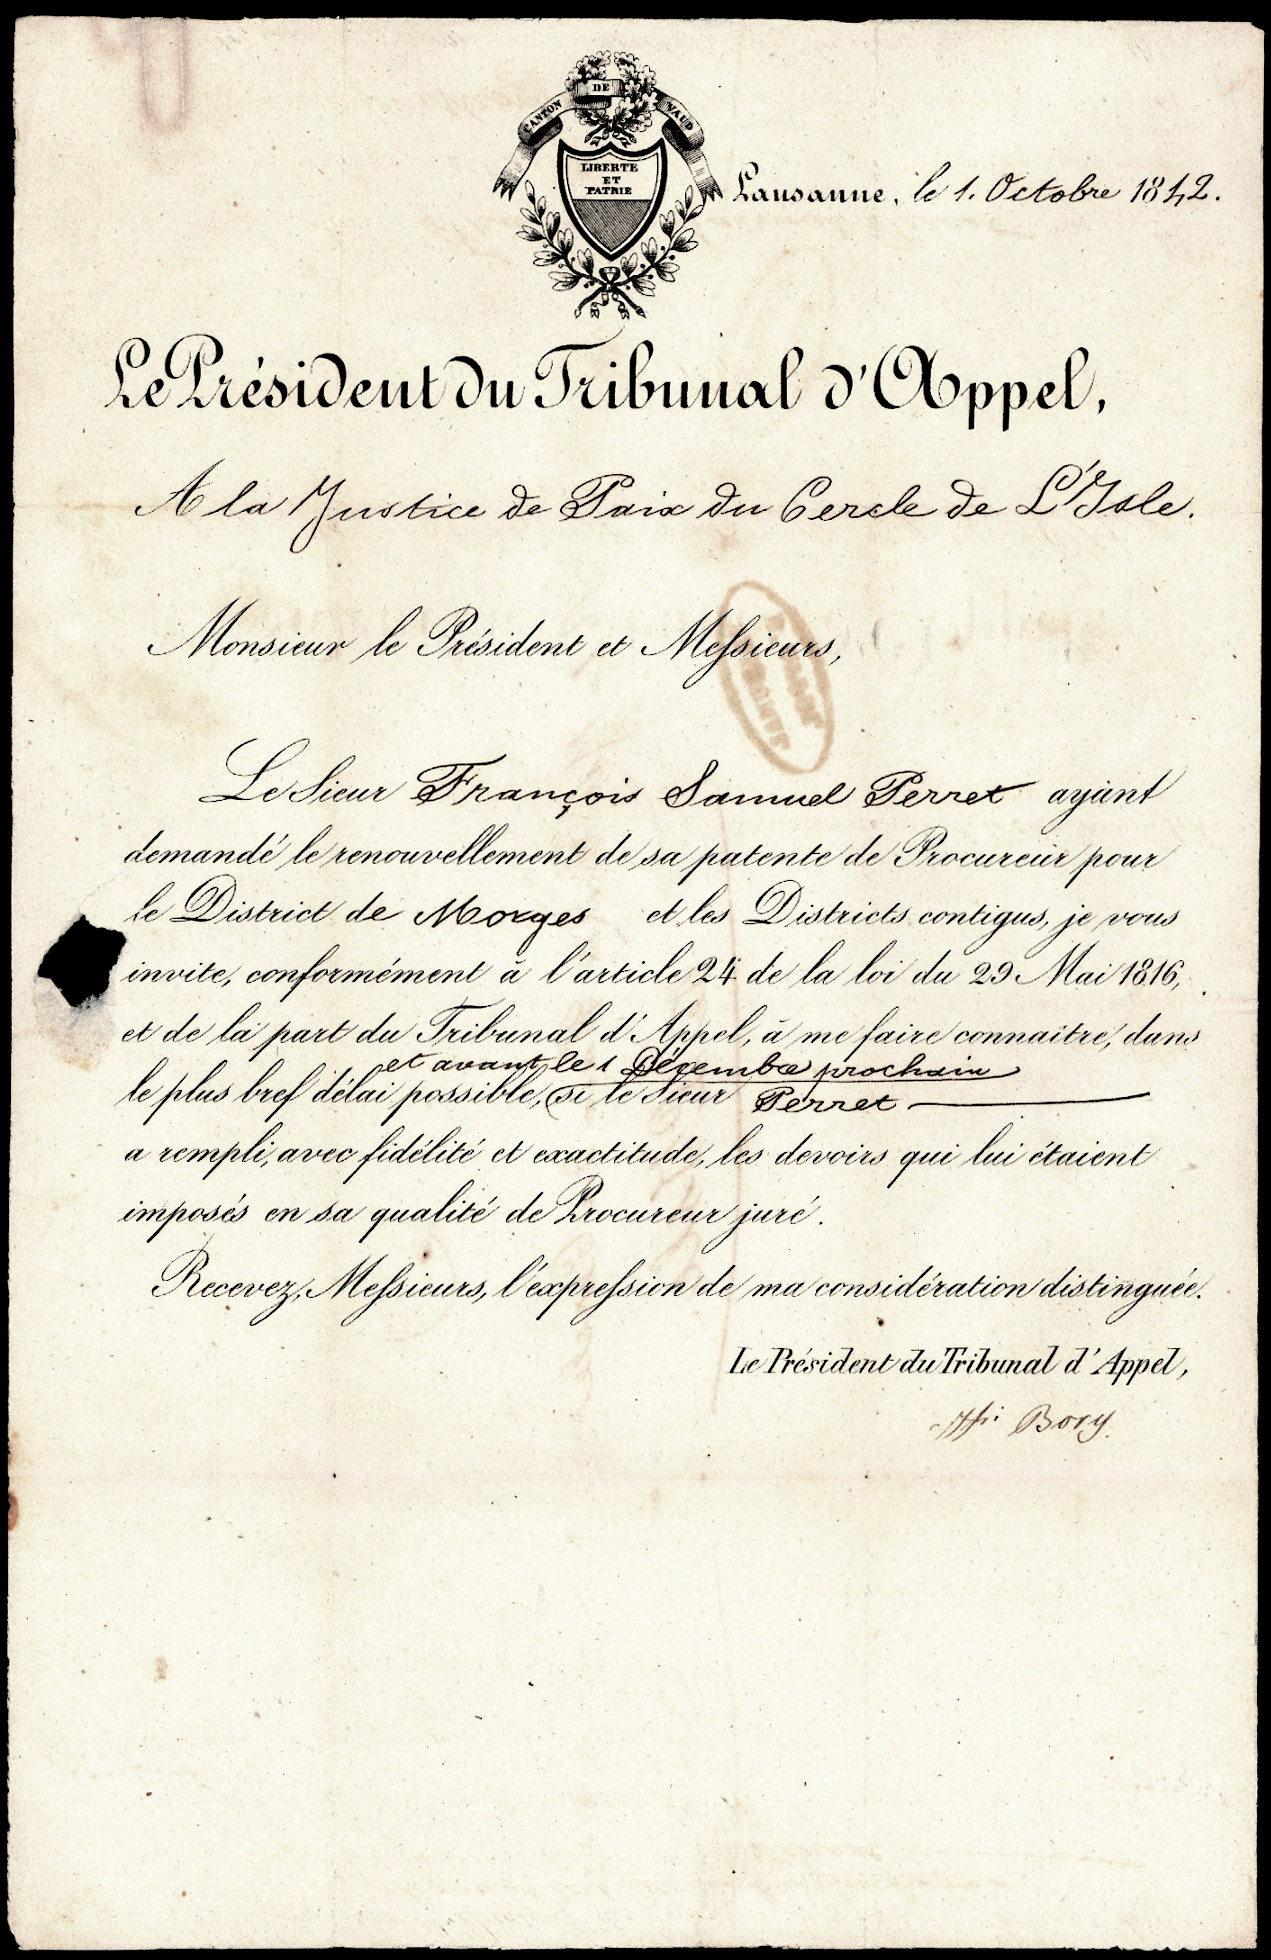 CANTON DE VAUD
LIBERTE
ET
PATRIE
Lausanne, le 1. Octobre 1842.
Le Président du Tribunal d'Appel,
A la Justice de Paix du Cercle de L'Isle.
Monsieur le Président et Messieurs,
Le Sieur François Samuel Perret ayant
demandé le renouvellement de sa patente de Procureur pour
le District de Morges et les Districts contigus, je vous
invite, conformément à l'article 24 de la loi du 29 Mai 1816,
et de la part du Tribunal d'Appel, à me faire connaître, dans
et avant le 1 Décembre prochain
le plus bref délai possible, si le Sieur Perret
a rempli, avec fidélité et exactitude, les devoirs qui lui étaient
imposés en sa qualité de Procureur juré.
Recevez, Messieurs, l'expression de ma considération distinguée.
Le Président du Tribunal d'Appel,
Bory